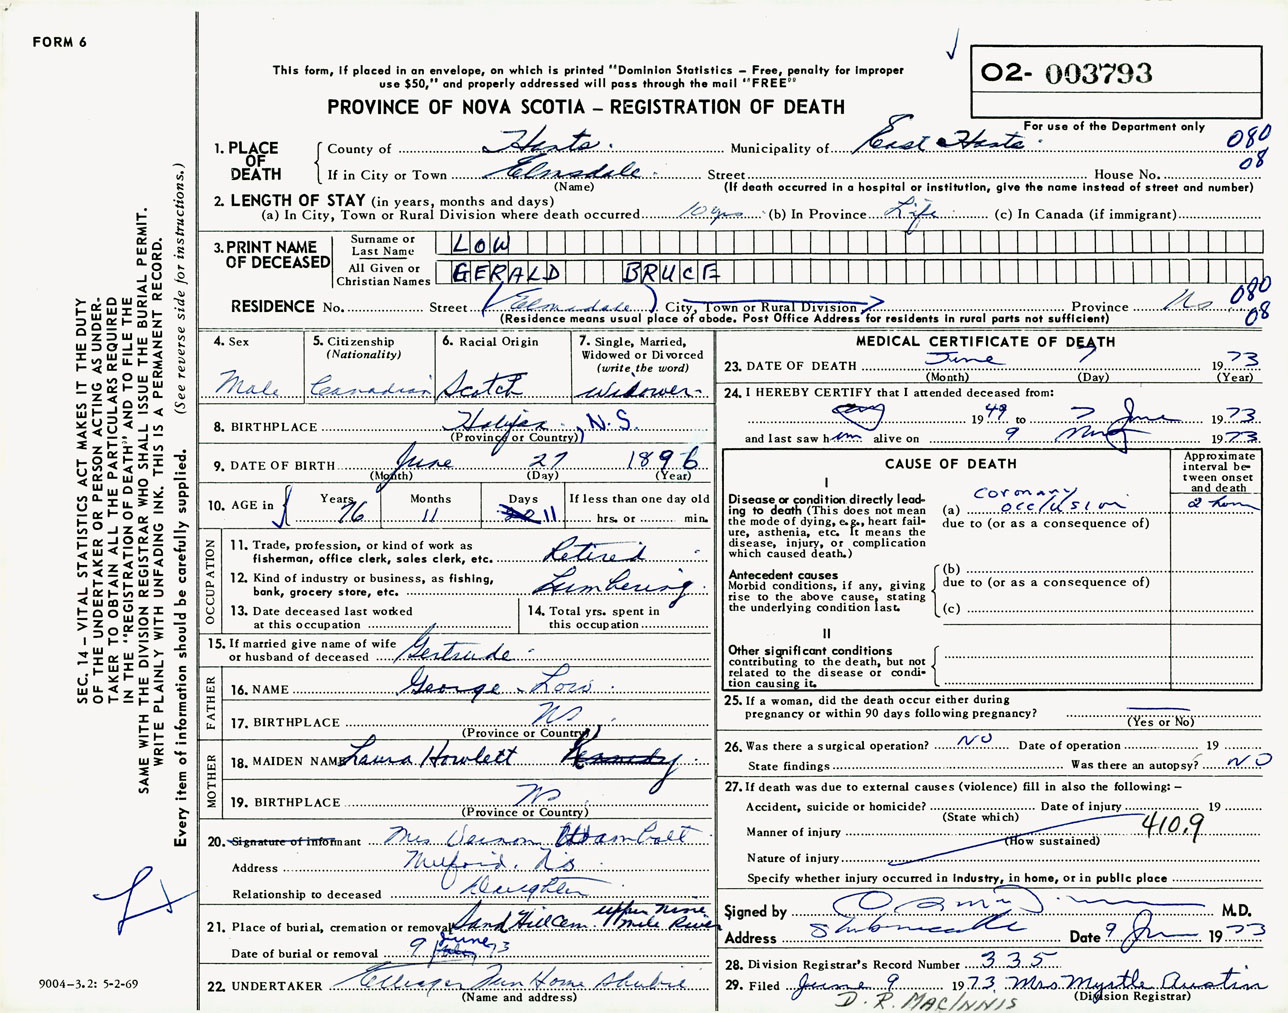 FORM 6
This form, if placed in an envelope, on which is printed "Dominion Statistics – Free, penalty for improper
use $50," and properly addressed will pass through the mail "FREE"
PROVINCE OF NOVA SCOTIA – REGISTRATION OF DEATH
02- 003793
For use of the Department only
SEC. 14 – VITAL STATISTICS ACT MAKES IT THE DUTY
OF THE UNDERTAKER OR PERSON ACTING AS UNDER-
TAKER TO OBTAIN ALL THE PARTICULARS REQUIRED
IN THE "REGISTRATION OF DEATH" AND TO FILE THE
SAME WITH THE DIVISION REGISTRAR WHO SHALL ISSUE THE BURIAL PERMIT.
WRITE PLAINLY WITH UNFADING INK. THIS IS A PERMANENT RECORD.
Every item of information should be carefully supplied. (See reverse side for instructions.)
1. PLACE OF DEATH
County of Hants Municipality of East Hants 080
If in City or Town Elmsdale Street House No. 08
(Name) (If death occurred in a hospital or institution, give the name instead of street and number)
2. LENGTH OF STAY (in years, months and days)
(a) In City, Town or Rural Division where death occurred 10 yrs (b) In Province Life (c) In Canada (if immigrant)
3. PRINT NAME OF DECEASED
Surname or Last Name LOW
All Given or Christian Names GERALD BRUCE
RESIDENCE No. Street (Elmsdale) City, Town or Rural Division Province NS 080
(Residence means usual place of abode. Post Office Address for residents in rural parts not sufficient) 08
4. Sex Male
5. Citizenship (Nationality) Canadian
6. Racial Origin Scotch
7. Single, Married, Widowed or Divorced (write the word) Widower
8. BIRTHPLACE Halifax, N.S.
(Province or Country)
9. DATE OF BIRTH June 27 1896
(Month) (Day) (Year)
10. AGE in Years 76 Months 11 Days 11 If less than one day old
hrs. or min.
OCCUPATION
11. Trade, profession, or kind of work as
fisherman, office clerk, sales clerk, etc. Retired
12. Kind of industry or business, as fishing,
bank, grocery store, etc. Lumbering
13. Date deceased last worked
at this occupation
14. Total yrs. spent in
this occupation
15. If married give name of wife
or husband of deceased Gertrude
FATHER
16. NAME George Low
17. BIRTHPLACE NS
(Province or Country)
MOTHER
18. MAIDEN NAME Laura Howlett Kennedy
19. BIRTHPLACE NS
(Province or Country)
20. Signature of informant Mrs Vernon
Address Milford, NS
Relationship to deceased Daughter
21. Place of burial, cremation or removal Sand Hill Cem. Upper Nine
Mile River
Date of burial or removal 9 June 73
22. UNDERTAKER Fun Home Shubie
(Name and address)
MEDICAL CERTIFICATE OF DEATH
23. DATE OF DEATH June 7 1973
(Month) (Day) (Year)
24. I HEREBY CERTIFY that I attended deceased from:
1949 to 7 June 1973
and last saw him alive on 9 May 1973
CAUSE OF DEATH
Approximate
interval be-
tween onset
and death
I
Disease or condition directly lead-
ing to death (This does not mean
the mode of dying, e.g., heart fail-
ure, asthenia, etc. It means the
disease, injury, or complication
which caused death.)
(a) coronary
occlusion 2 hours
due to (or as a consequence of)
Antecedent causes
Morbid conditions, if any, giving
rise to the above cause, stating
the underlying condition last.
(b)
due to (or as a consequence of)
(c)
II
Other significant conditions
contributing to the death, but not
related to the disease or condi-
tion causing it.
25. If a woman, did the death occur either during
pregnancy or within 90 days following pregnancy?
(Yes or No)
26. Was there a surgical operation? NO Date of operation 19
State findings Was there an autopsy? NO
27. If death was due to external causes (violence) fill in also the following: –
Accident, suicide or homicide? Date of injury 19
(State which)
Manner of injury 410.9
(How sustained)
Nature of injury
Specify whether injury occurred in industry, in home, or in public place
Signed by M.D.
Address Shubenacadie Date 9 June 1973
28. Division Registrar's Record Number 335
29. Filed June 9 1973 Mrs Myrtle Austin
(Division Registrar)
D. R. MACINNIS
9004–3.2: 5-2-69